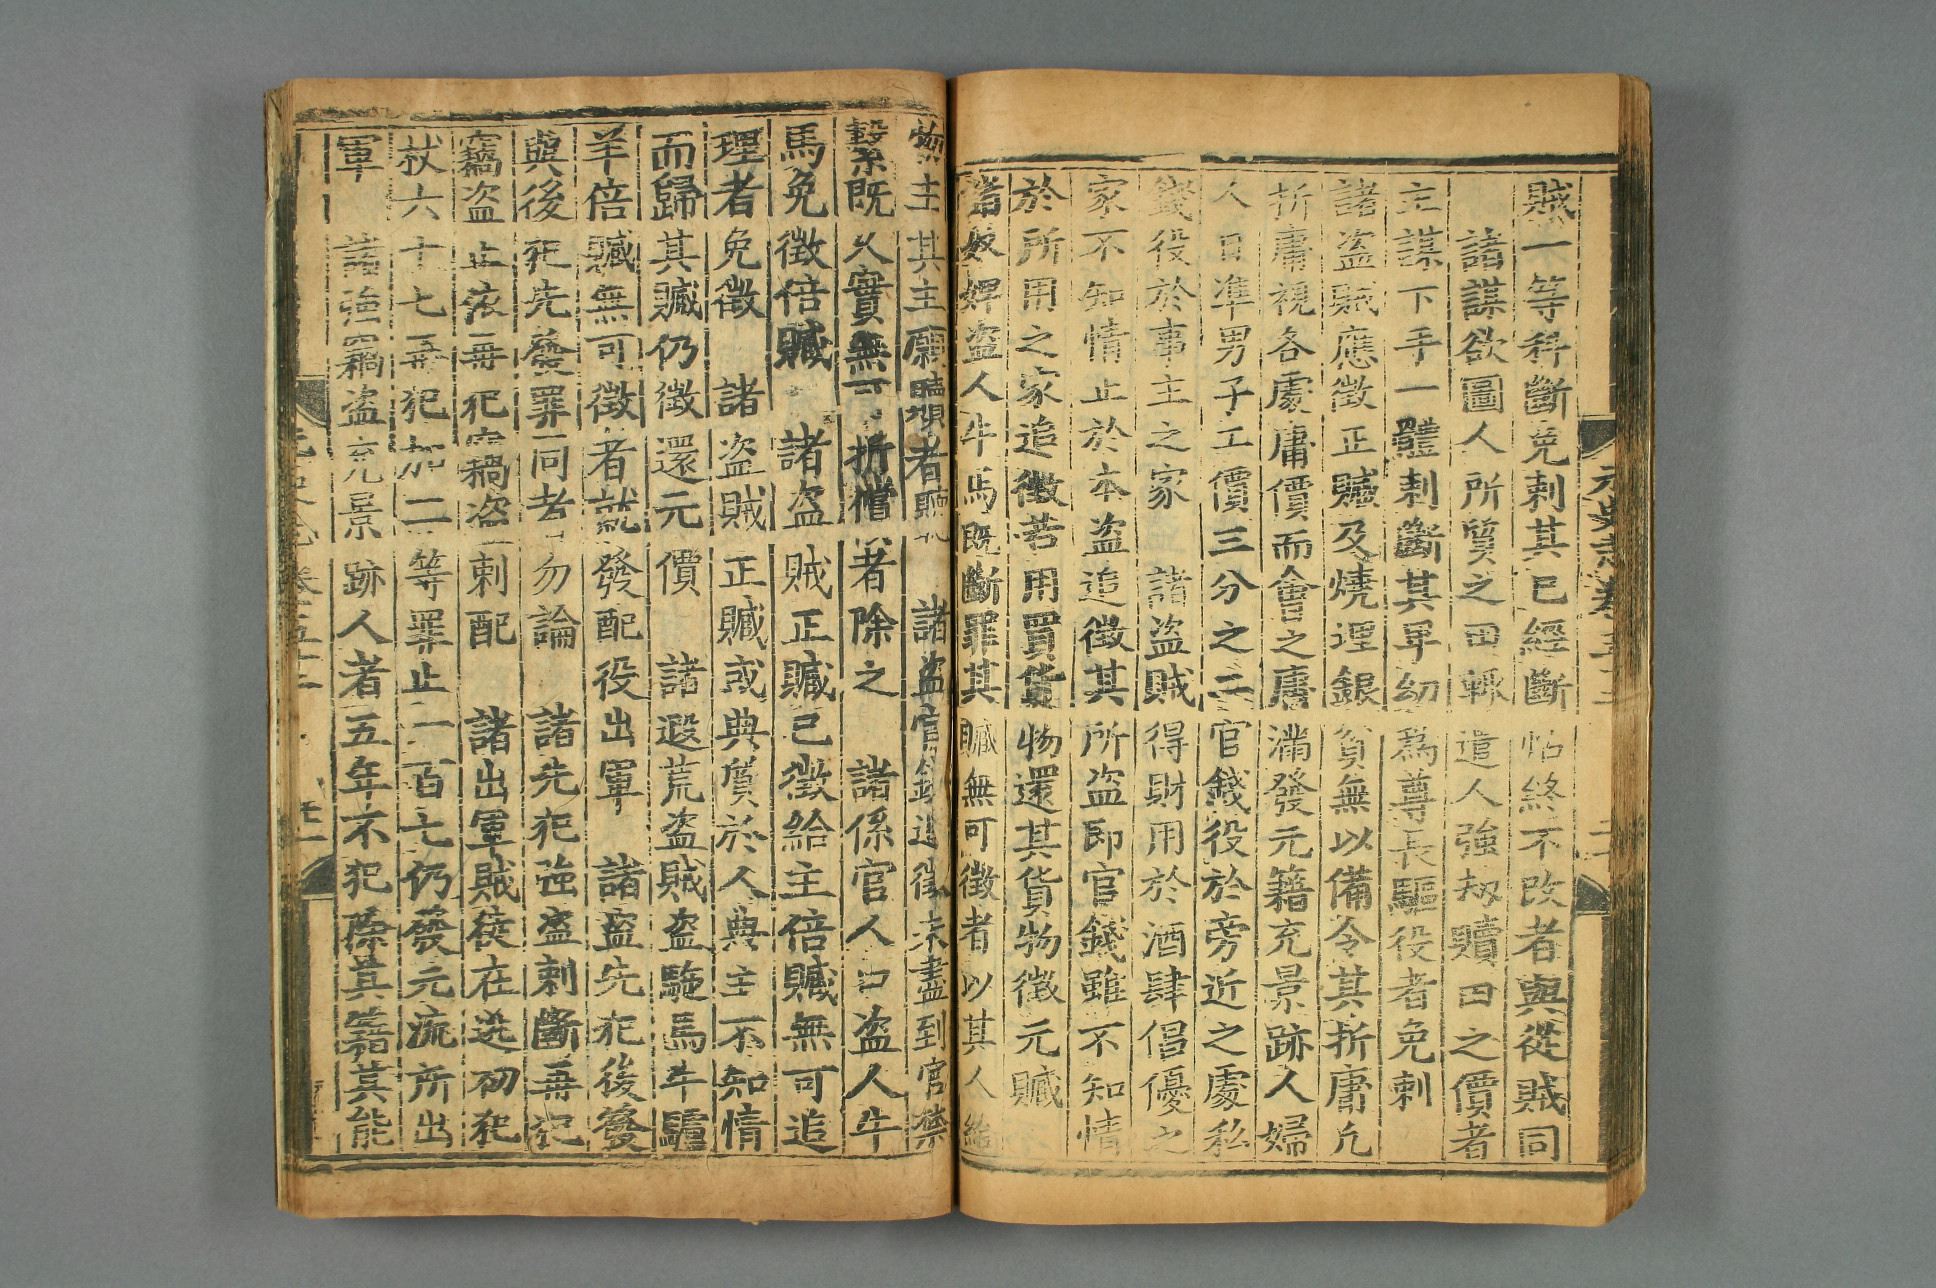 賊一等科斷免刺其已經斷怙終不改者與從賊同
諸謀欲圖人所質之田輒遣人強刼贖田之價者
主謀下手一體刺斷其卑幼爲尊長驅役者免刺
諸盜賊應徵正贓及燒埋銀貧無以備令其折庸凡
折庸視各處庸價而會之庸滿發元籍充景跡人婦
人日准男子工價三分之二官錢役於旁近之處私
錢役於事主之家　諸盜賊得財用於酒肆倡優之
家不知情止於本盜追徵其所盜即官錢雖不知情
於所用之家追徵若用買貨物還其貨物徵元贓
諸奴婢盜人牛馬既斷罪其贓無可徵者以其人給
物主其主願贖者聽　諸盜官錢追徵未盡到官禁
繫既久實無可折償者除之　諸係官人口盜人牛
馬免徵倍贓　諸盜賊正贓已徵給主倍贓無可追
理者免徵　諸盜賊正贓或典質於人典主不知情
而歸其贓仍徵還元價　諸遐荒盜賊盜駞馬牛驢
羊倍贓無可徵者就發配役出軍　諸盜先犯後發
與後犯先發罪同者勿論　諸先犯強盜刺斷再犯
竊盜止依再犯竊盜刺配　諸出軍賊徒在逃初犯
杖六十七再犯加二等罪止一百七仍發元流所出
軍　諸強竊盜充景跡人者五年不犯除其籍其能
元史志卷五十二